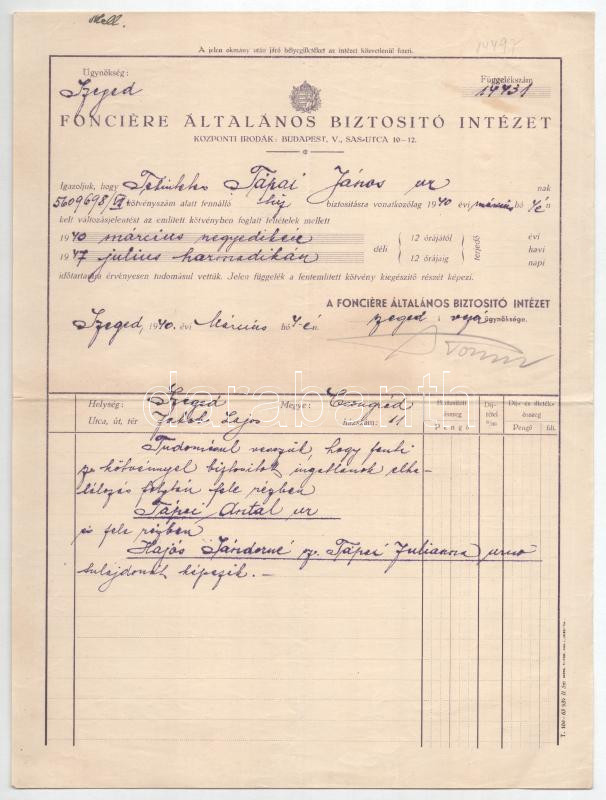 A jelen okmány után járó bélyegilletéket az intézet közvetlenül fizeti.
14497
Ügynökség:
Szeged
Függelékszám
14431
FONCIÈRE ÁLTALÁNOS BIZTOSITÓ INTÉZET
KÖZPONTI IRODÁK: BUDAPEST, V., SAS-UTCA 10-12.
Igazoljuk, hogy Tekintetes Tápai János ur nak
5609698/VI kötvényszám alatt fennálló tűz biztosításra vonatkozólag 1940 évi március hó 4-én
kelt változásjelentést az említett kötvényben foglalt feltételek mellett
1940 március negyedikétől
1947 julius harmadikán
déli
12 órájától
12 órájáig
terjedő
évi
havi
napi
időtartamra érvényesen tudomásul vettük. Jelen függelék a fentemlített kötvény kiegészítő részét képezi.
A FONCIÈRE ÁLTALÁNOS BIZTOSITÓ INTÉZET
Szeged, 1940. évi Március hó 4-én.
szegedi ügynöksége.
darabanth
Helység: Szeged Megye: Csongrád
Utca, út, tér Jakab Lajos házszám: 11
Biztosított összeg
Pengő
Díjtétel
Díj- és illetékösszeg
Pengő fill.
Tudomásul vesszük, hogy fenti
sz. kötvénnyel biztosított ingatlanok elha-
lálozás folytán fele részben
Tápai Antal ur
és fele részben
Hajós Sándorné sz. Tápai Julianna urnő
tulajdonát képezik. –